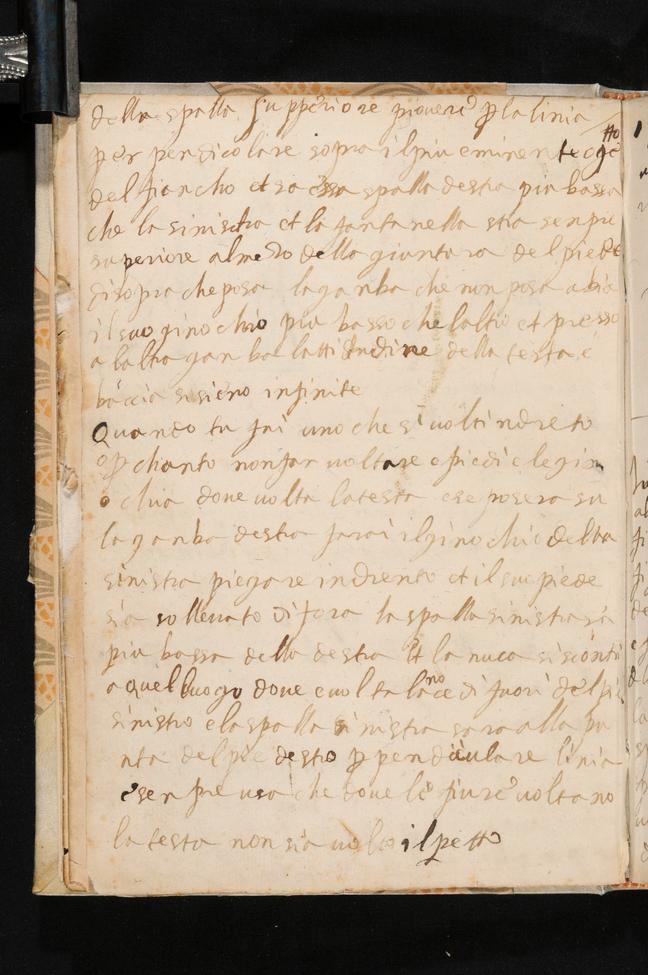 della spalla superiore piovere p la linia
per pendicolare sopra il piu eminente
del fiancho et sia essa spalla destra piu bassa
che la sinistra et la fontanella stia senpre
superiore al mezo della giuntura del piede
di sopra che posa la ganba che non posa abia
il suo ginochio piu basso che laltro et presso
a laltra ganba lattitudine della testa e
baccia si sieno infinite
Quando tu fai uno che si uolti indreto
p chanto non far uoltare e piedi
doue uolta la testa e se posera su
la ganba destra farai il ginochio della
sinistra piegare indrento et il suo piede
sia solleuato di fora la spalla sinistra sia
piu bassa della destra et la nuca si scontri
a quel luogo doue e uolta la noce di fuori del pie
sinistro e la spalla sinistra sara alla pu
nta del pie destro p pendiculare linia
e senpre usa che doue le figure uoltano
la testa non sia uolto il petto